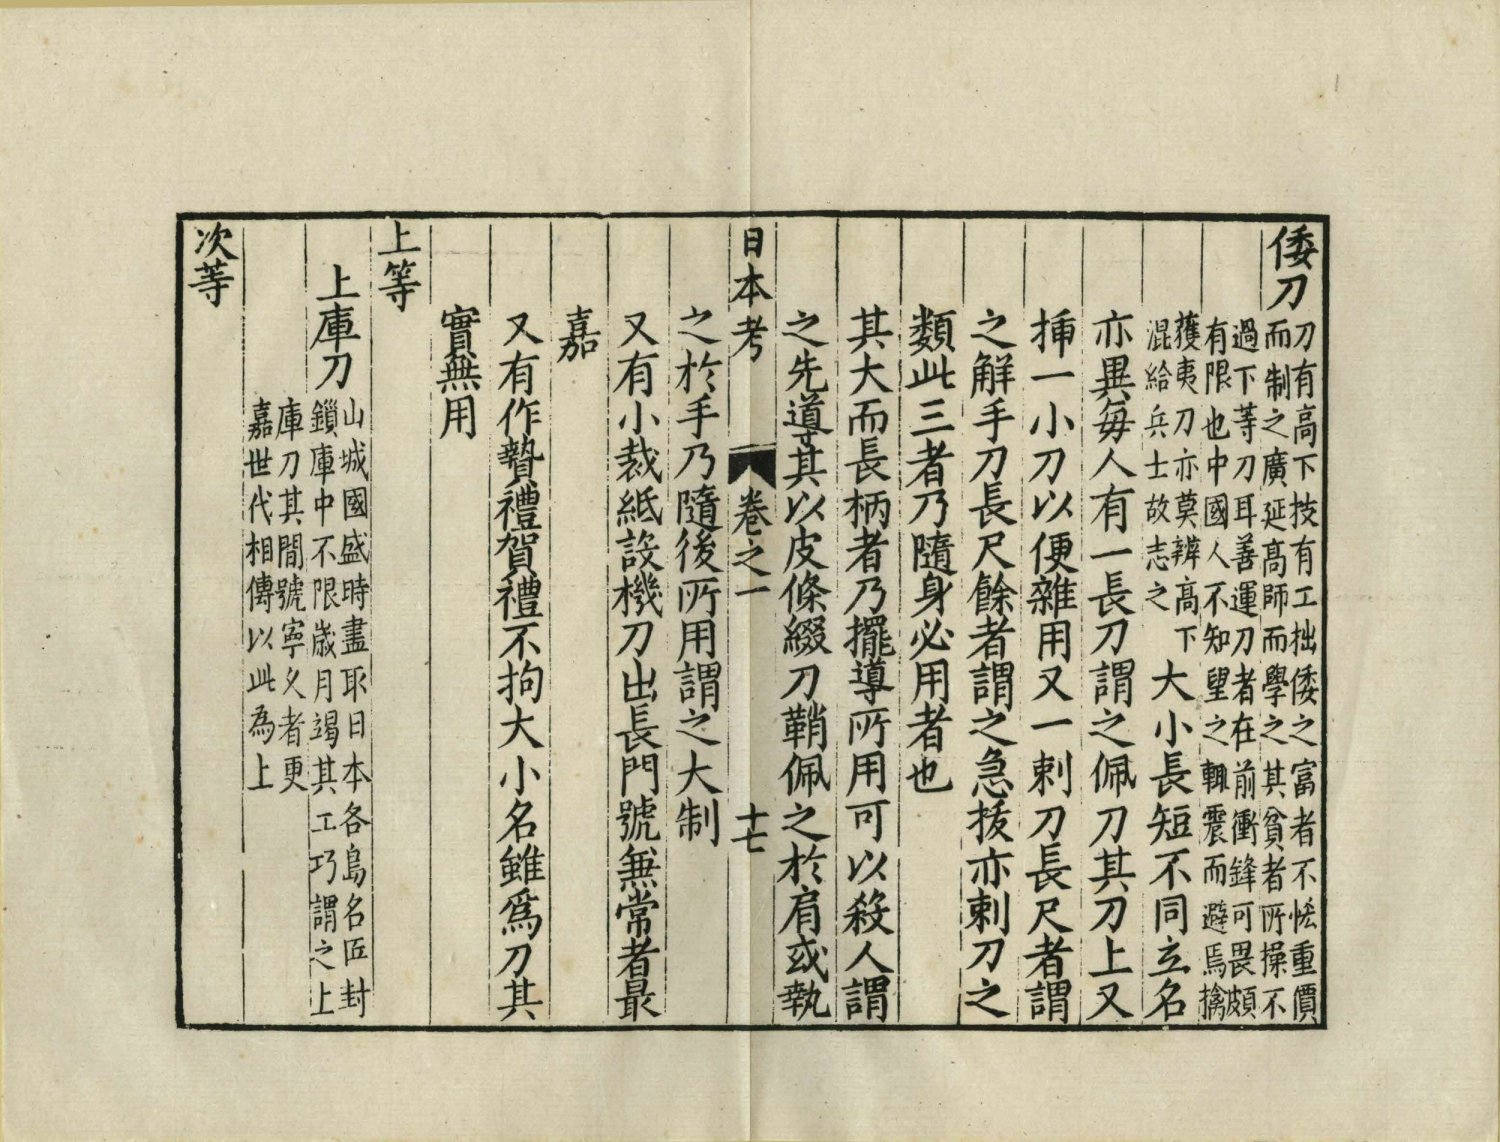 倭刀
刀有高下技有工拙倭之富者不恡重價
而制之廣延高師而學之其貧者所操不
過下等刀耳善運刀者在前衝鋒可畏頗
有限也中國人不知望之輒震而避焉擒
獲夷刀亦莫辨高下
混給兵士故志之
大小長短不同立名
亦異每人有一長刀謂之佩刀其刀上又
揷一小刀以便雜用又一刺刀長尺者謂
之解手刀長尺餘者謂之急拔亦刺刀之
類此三者乃隨身必用者也
其大而長柄者乃擺導所用可以殺人謂
之先導其以皮條綴刀鞘佩之於肩或執
日本考 卷之一 十七
之於手乃隨後所用謂之大制
又有小裁紙設機刀出長門號無常者最
嘉
又有作贄禮賀禮不拘大小名雖爲刀其
實無用
上等
上庫刀
山城國盛時盡取日本各島名匠封
鎖庫中不限歲月竭其工巧謂之上
庫刀其間號寧久者更
嘉世代相傳以此為上
次等